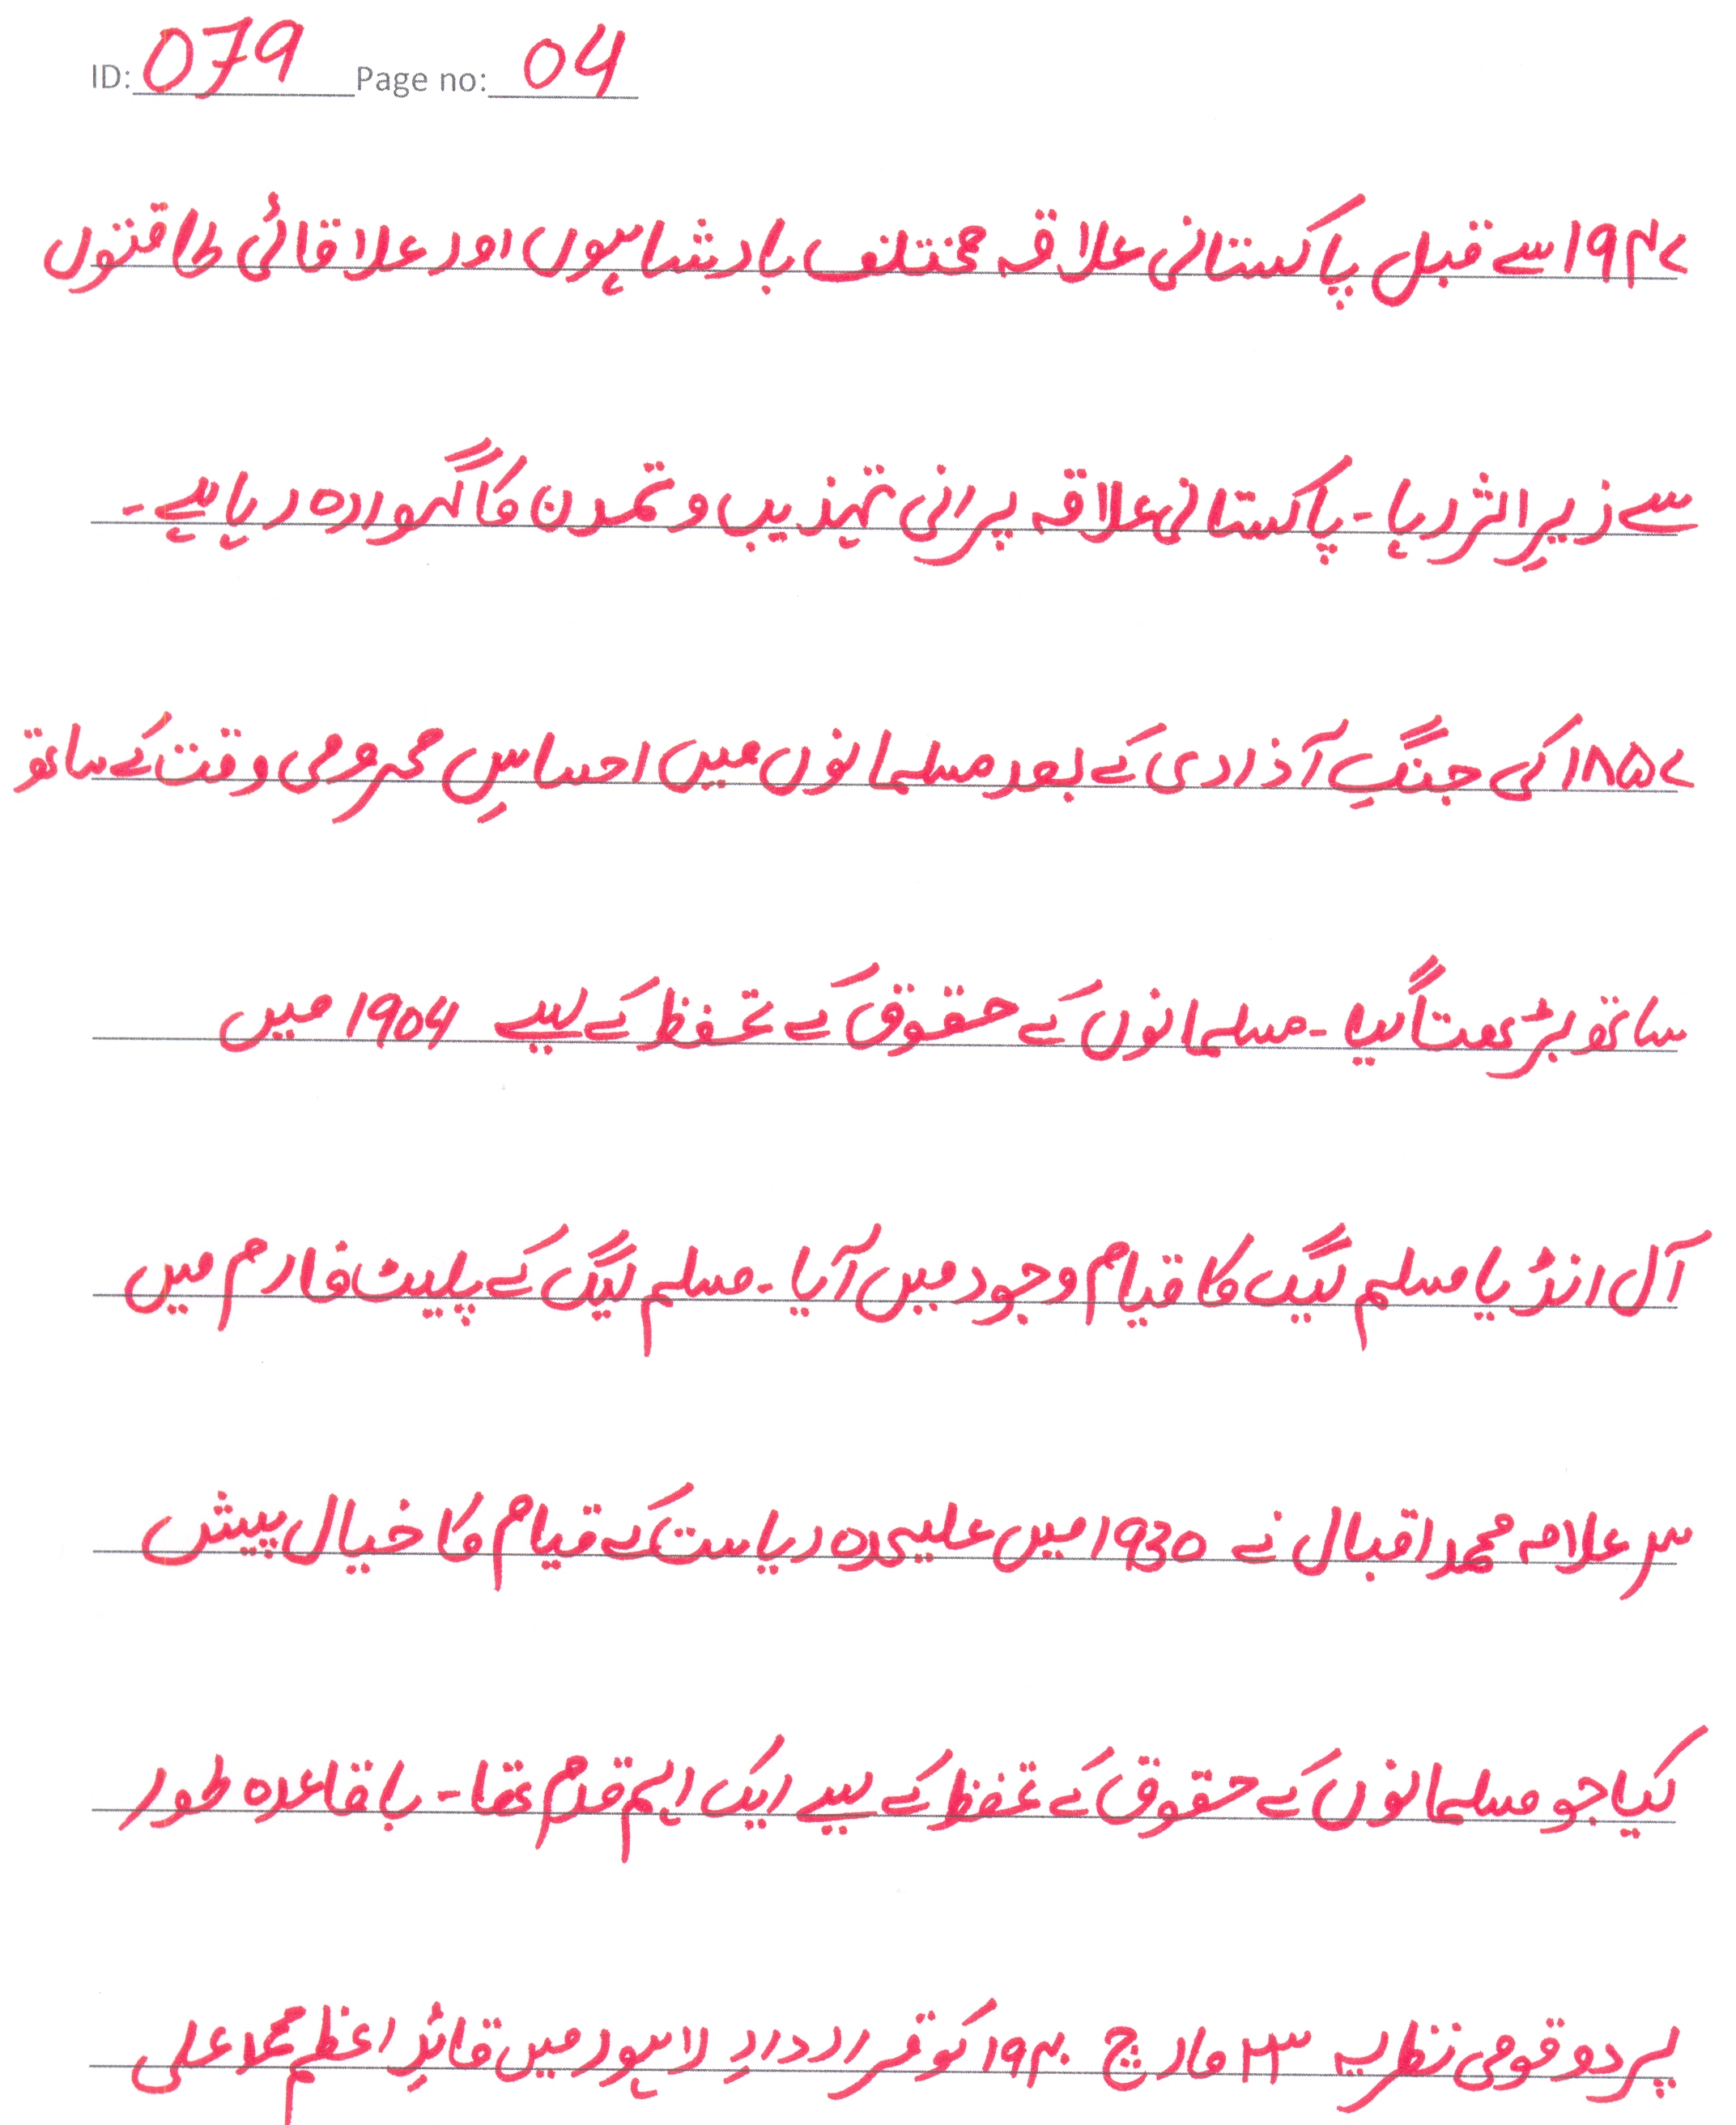 ID: 079 Page no: 04
۱۹۴۷ سے قبل پاکستانی علاقہ مختلف بادشاہوں اور علاقائی طاقتوں
سے زیرِ اثر رہا۔ پاکستانی علاقہ پرانی تہذیب و تمدن کا گہوارہ رہا ہے۔
۱۸۵۷ کی جنگِ آذادی کے بعد مسلمانوں میں احساسِ محرومی وقت کے ساتھ
ساتھ بڑھتا گیا۔ مسلمانوں کے حقوق کے تحفظ کے لیے 1904 میں
آل انڈیا مسلم لیگ کا قیام وجود میں آیا۔ مسلم لیگ کے پلیٹ فارم میں
سر علامہ محمد اقبال نے 1930 میں علیحدہ ریاست کے قیام کا خیال پیش
کیا جو مسلمانوں کے حقوق کے تحفظ کے لیے ایک اہم قدم تھا۔ باقاعدہ طور
پر دو قومی نظریہ ۲۳ مارچ ۱۹۴۰ کو قرار دادِ لاہور میں قائدِ اعظم محمد علی